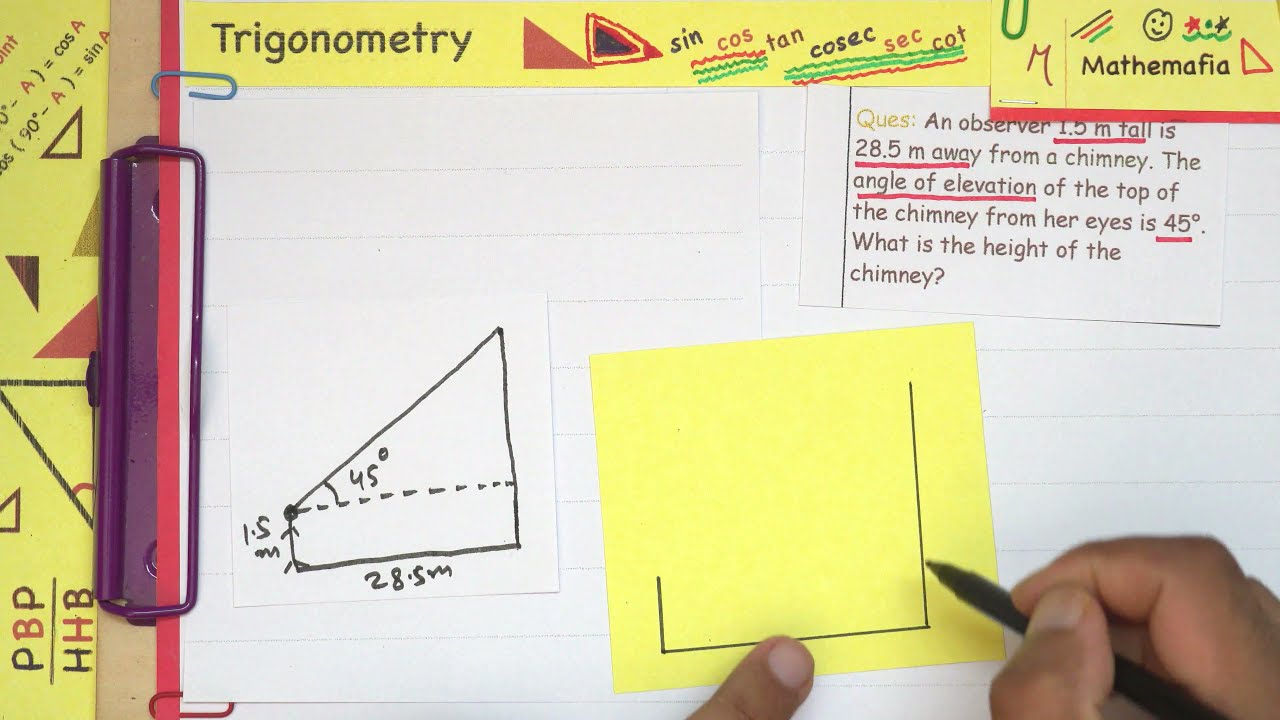 Trigonometry
sin cos tan cosec sec cot
Mathemafia
Ques: An observer 1.5 m tall is
28.5 m away from a chimney. The
angle of elevation of the top of
the chimney from her eyes is 45°.
What is the height of the
chimney?
45°
1.5
m
28.5m
- A ) = cos A
(90°- A ) = sin A
PBP
HHB